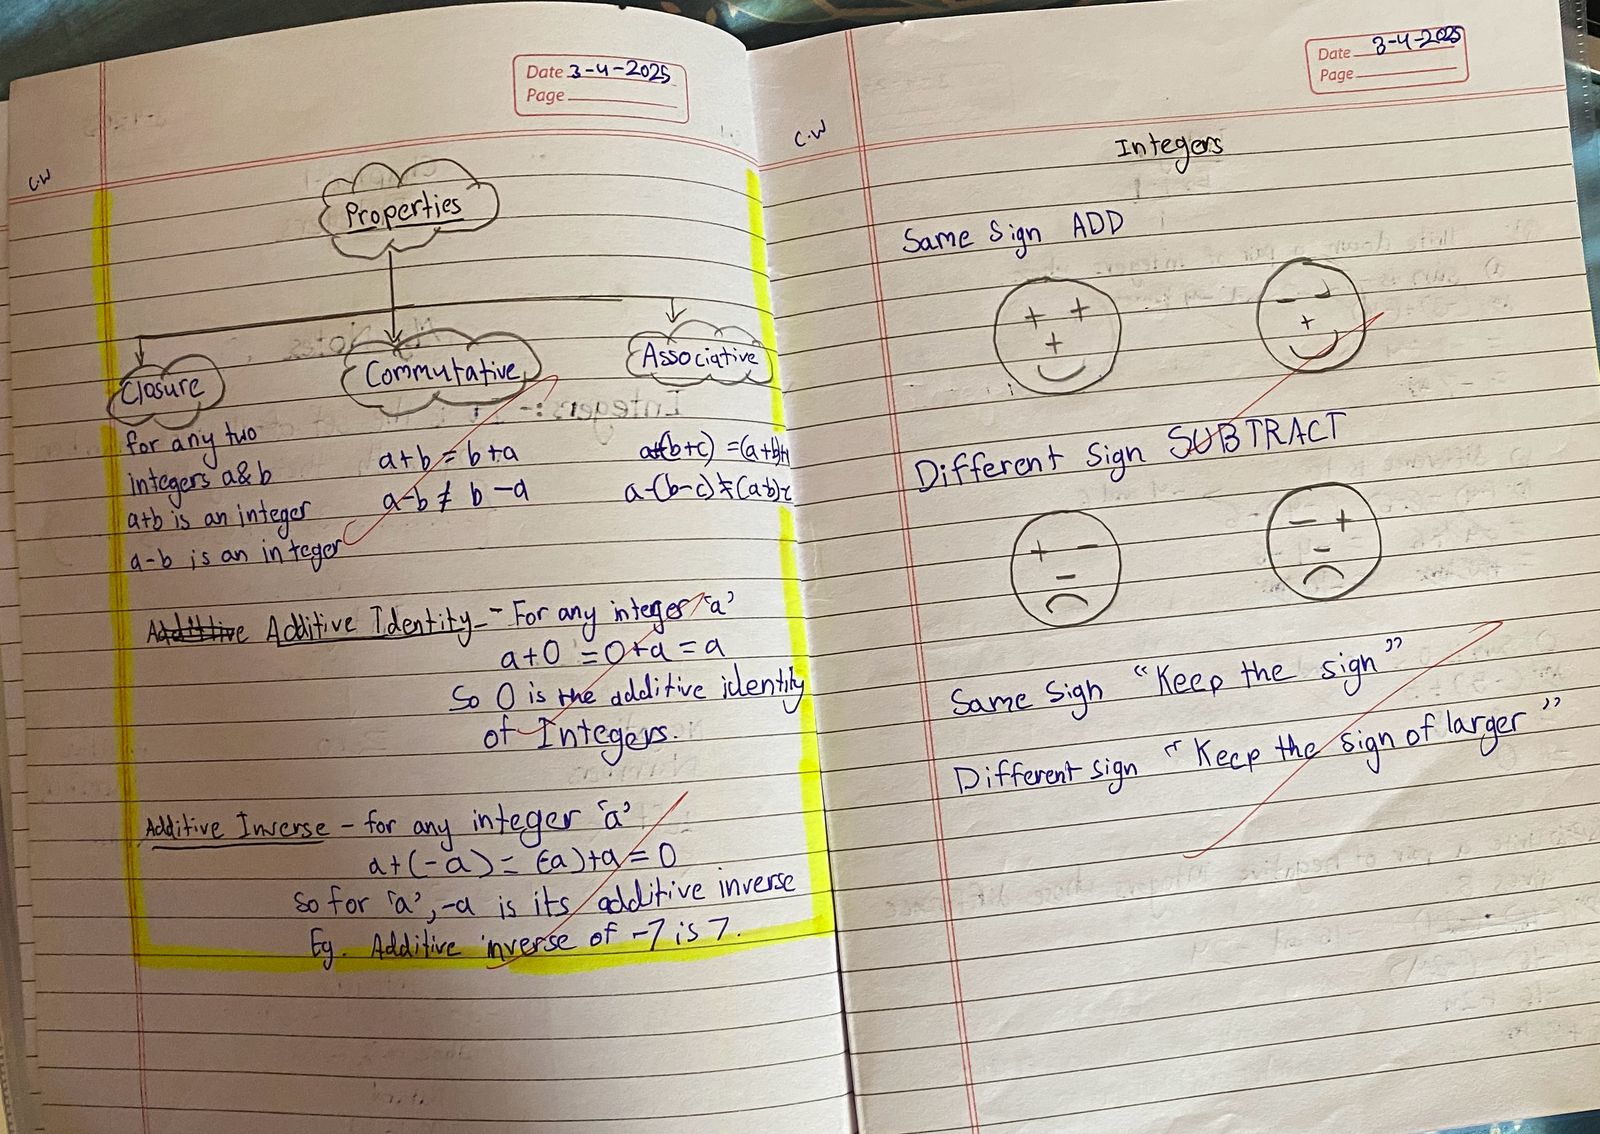 Date 3-4-2025
Page
C.W
Properties
Closure
Commutative
Associative
for any two
integers a&b
a+b is an integer
a-b is an integer
a+b = b+a
a-b ≠ b-a
a+(b+c) =(a+b)+
a-(b-c)≠(a-b)-c
Additive Identity - For any integer 'a'
a+0 =0+a = a
So 0 is the additive identity
of Integers.
Additive Inverse - for any integer 'a'
a+(-a) = (-a)+a = 0
So for 'a', -a is its additive inverse
Eg. Additive inverse of -7 is 7.
Date 3-4-2025
Page
C.W
Integers
Same Sign ADD
+ +
+
- -
+
Different Sign SUBTRACT
+ -
-
- +
-
Same Sign "Keep the sign"
Different sign "Keep the sign of larger"